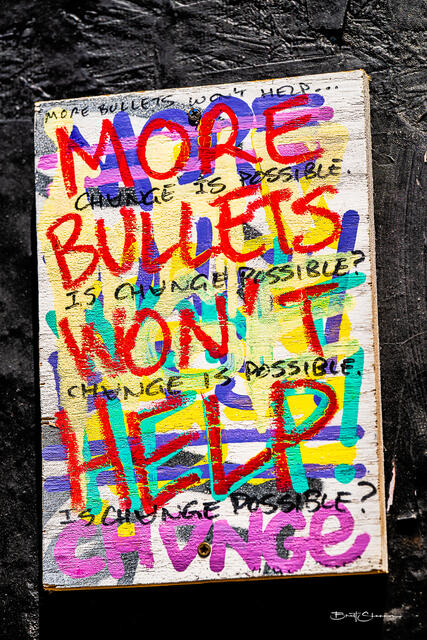 MORE BULLETS WON'T HELP...
MORE
CHUNGE IS POSSIBLE.
BULLETS
IS CHUNGE POSSIBLE?
WON'T
CHUNGE IS POSSIBLE.
HELP!
IS CHUNGE POSSIBLE?
CHUNGE